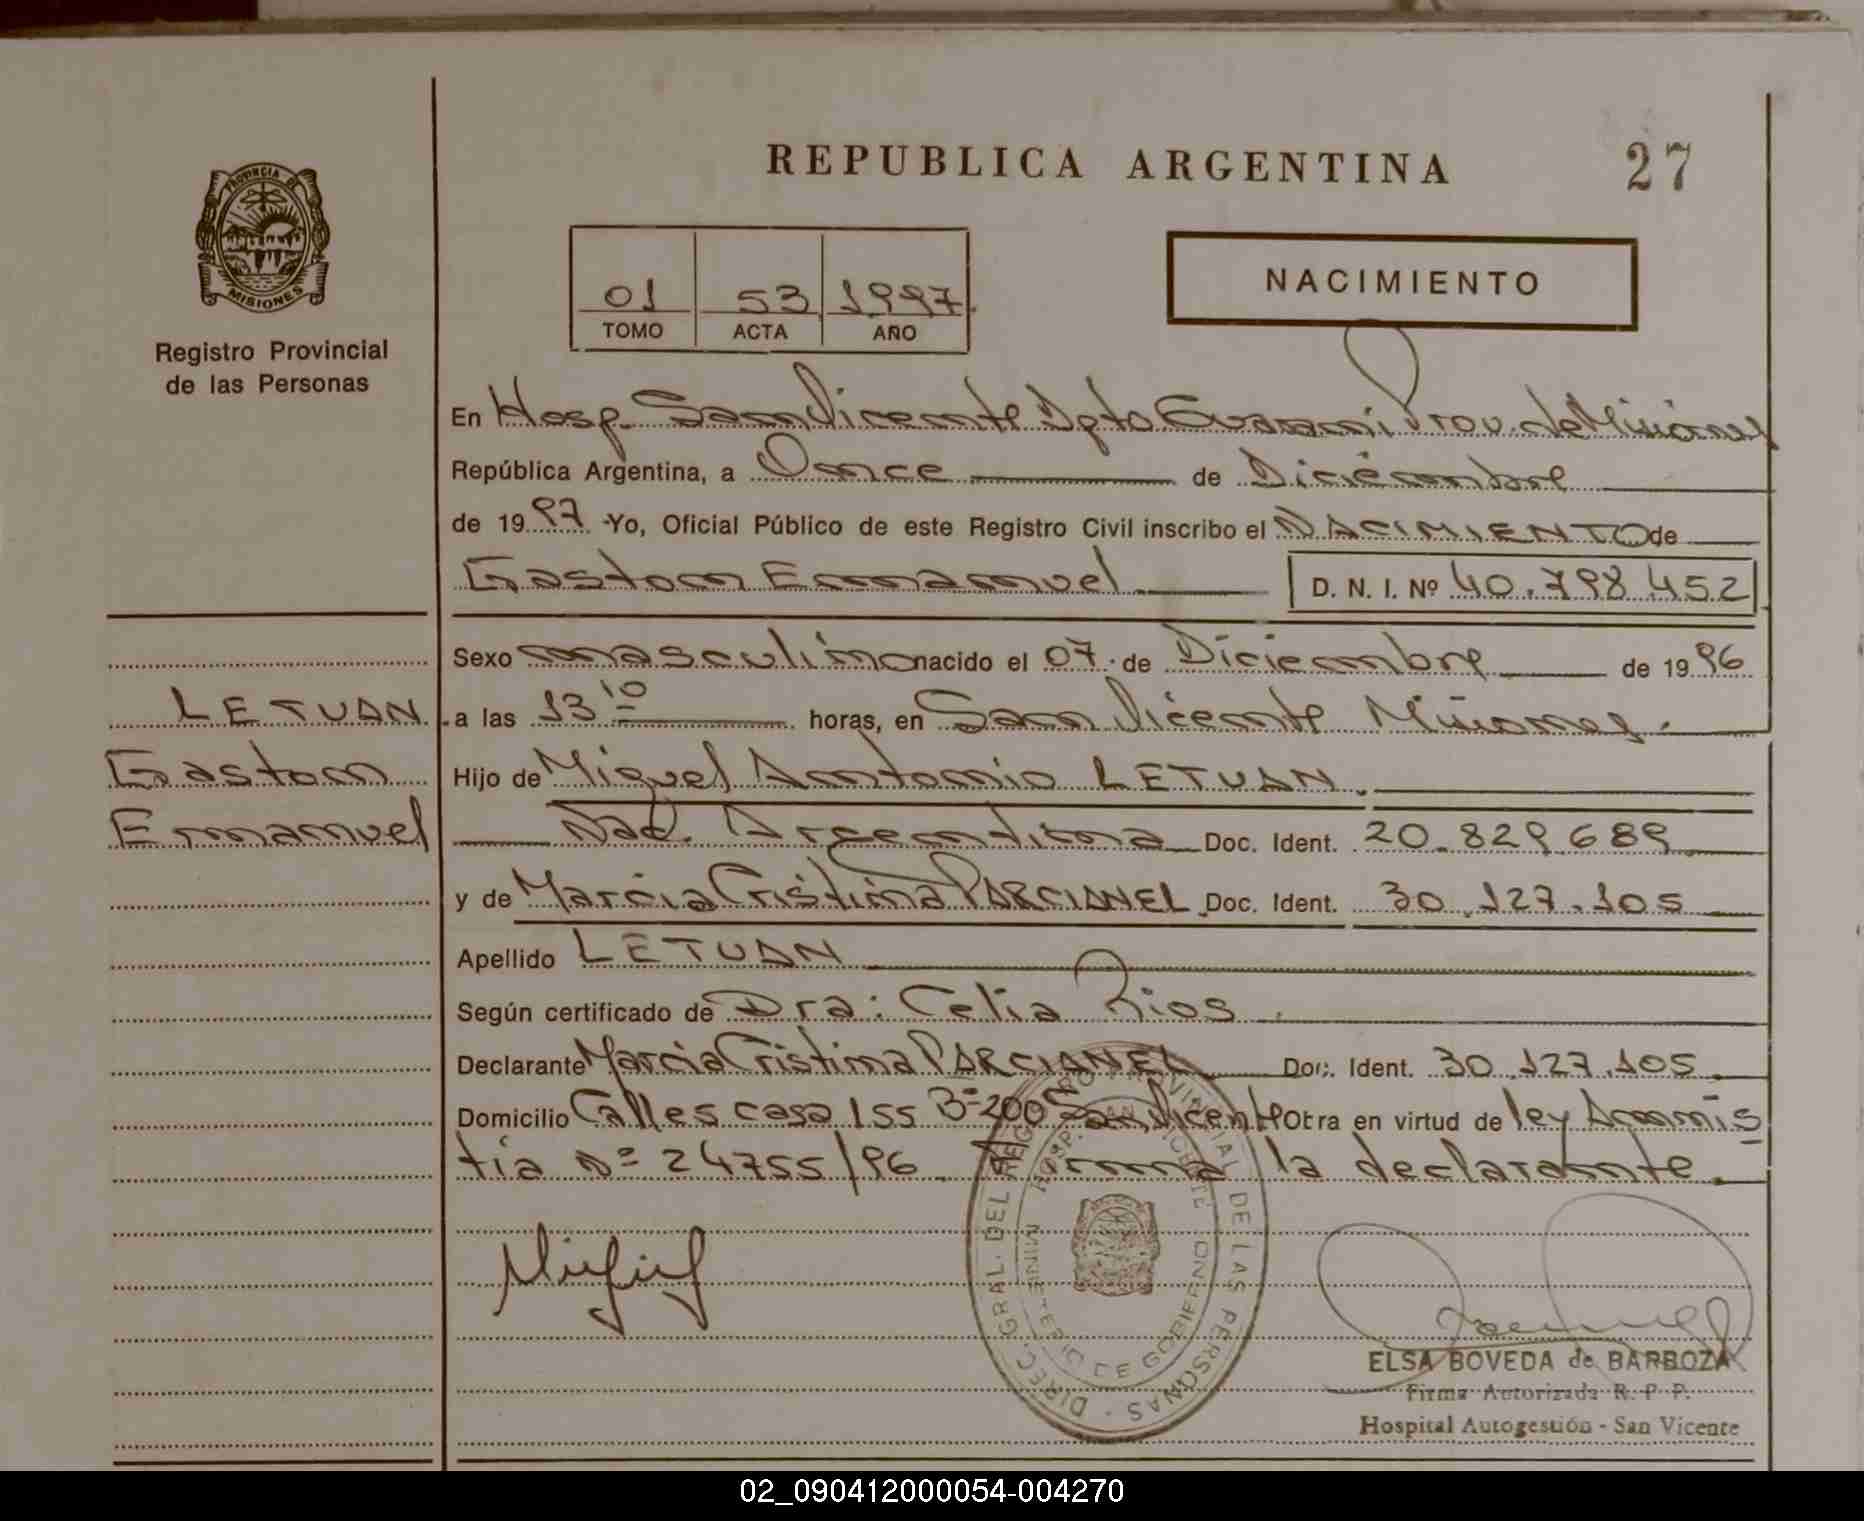 PROVINCIA DE
MISIONES
Registro Provincial
de las Personas
REPUBLICA ARGENTINA
27
01 53 1997
TOMO ACTA AÑO
NACIMIENTO
En Hosp. San Vicente Dpto Guarani Prov. de Misiones
República Argentina, a Once de Diciembre
de 1997 Yo, Oficial Público de este Registro Civil inscribo el NACIMIENTO de
Gaston Emmanuel D. N. I. Nº 40.798.452
Sexo masculino nacido el 07 de Diciembre de 1996
a las 13 10 horas, en San Vicente Misiones.
Hijo de Miguel Antonio LETUAN.
Nac. Argentina Doc. Ident. 20.829.689
y de Marcia Cristina PARCIANEL Doc. Ident. 30.127.105
Apellido LETUAN
Según certificado de Dra: Celia Rios.
Declarante Marcia Cristina PARCIANEL Doc. Ident. 30.127.105.
Domicilio Calles casa 155 Bº 200 San Vicente Otra en virtud de ley Amnis
tia Nº 24755/96. Firma la declarante.
LETUAN
Gaston
Emmanuel
DIREC. GRAL. DEL REGISTRO PROVINCIAL DE LAS PERSONAS
HOSP. SAN VICENTE
MINISTERIO DE GOBIERNO
ELSA BOVEDA de BARBOZA
Firma Autorizada R. P. P.
Hospital Autogestión - San Vicente
02_090412000054-004270